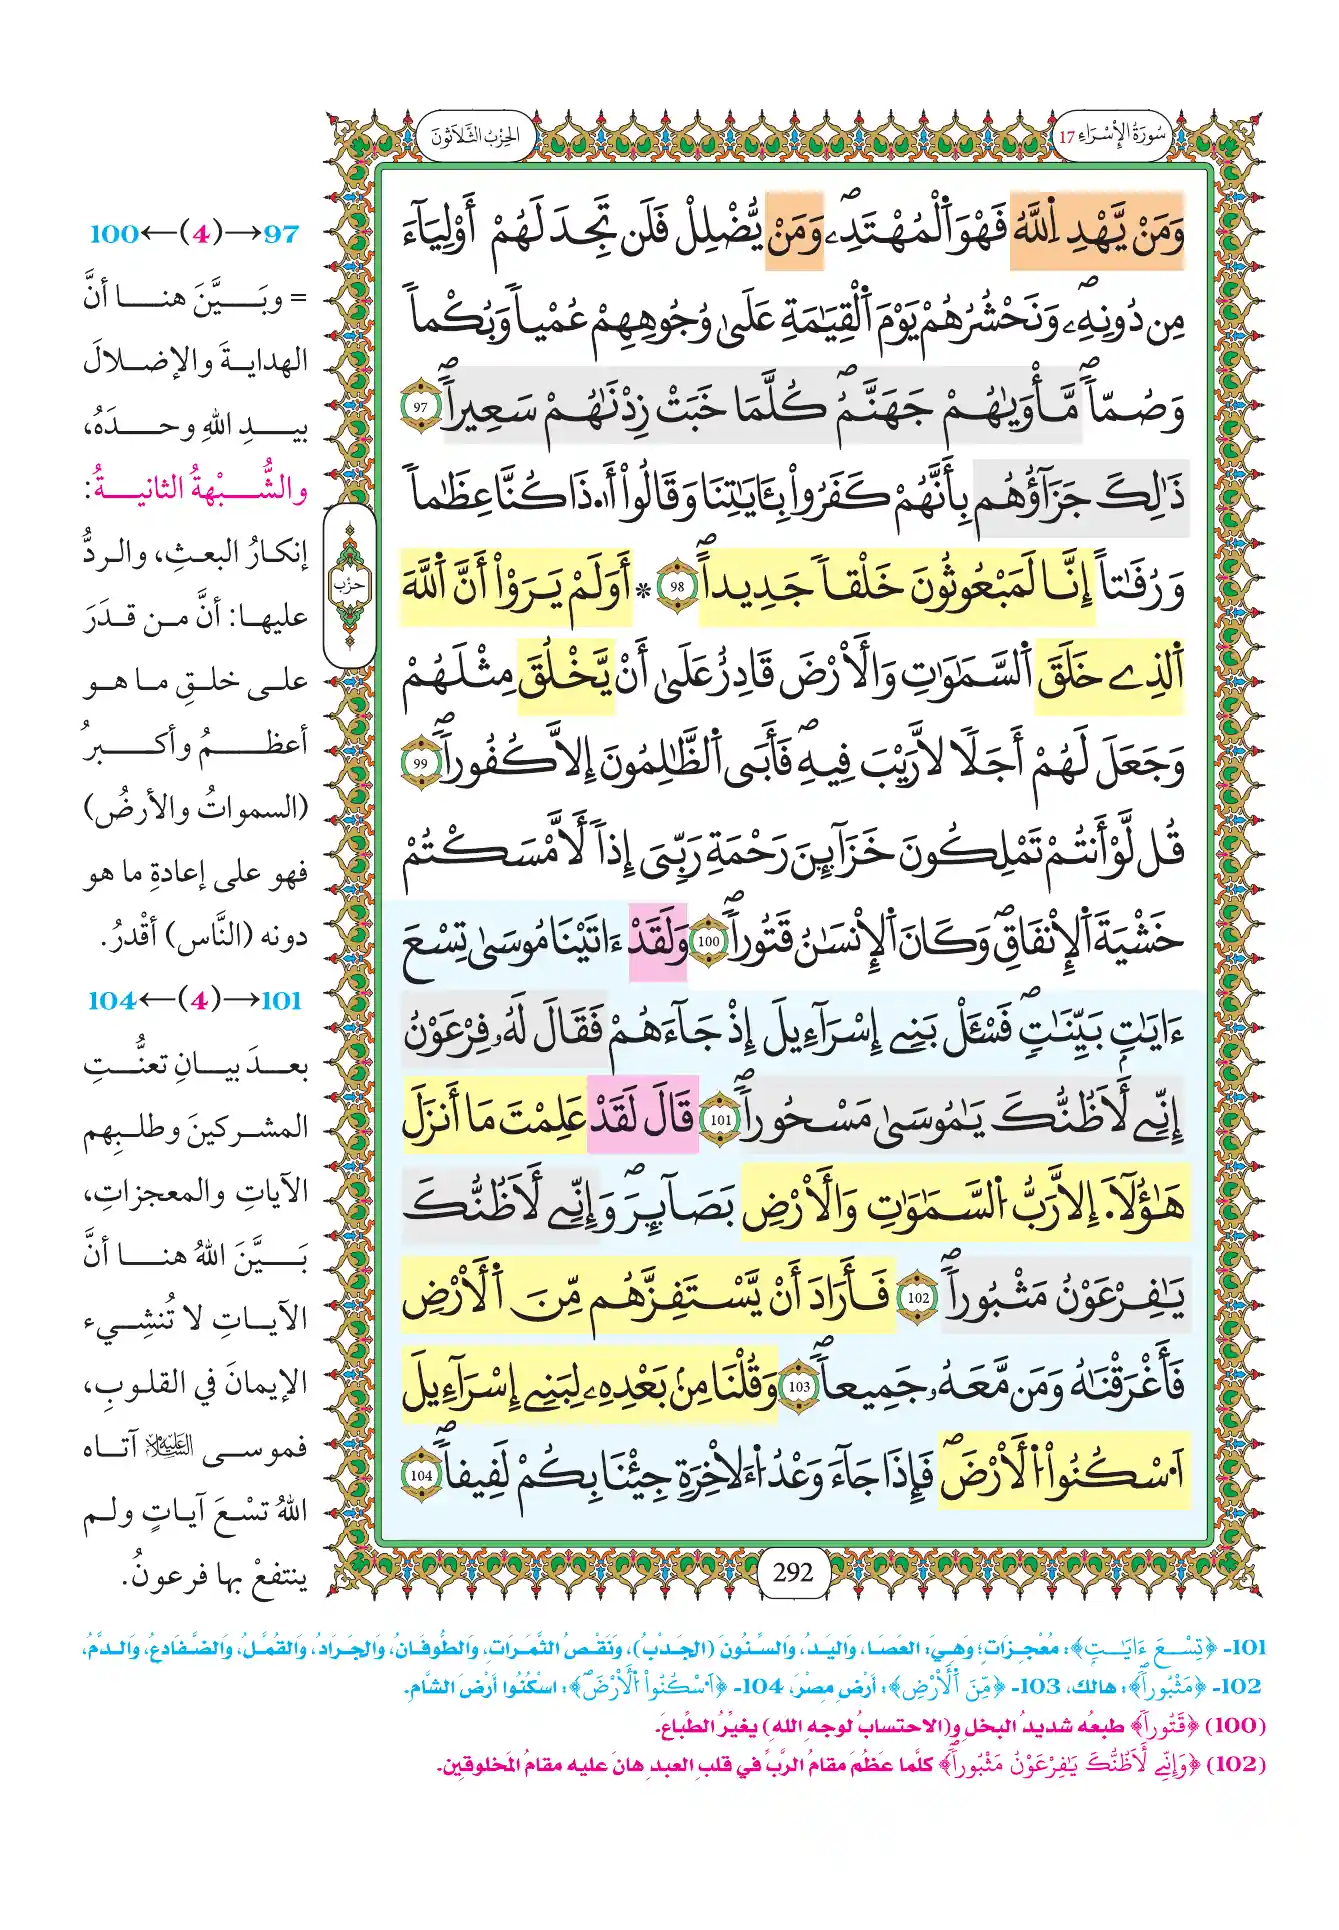 سُورَةُ الإِسْرَاءِ 17
الحِزْبُ الثَّلَاثُونَ
وَمَنْ يَّهْدِ اِ۬للَّهُ فَهُوَ اَ۬لْمُهْتَدِۦۖ وَمَنْ يُّضْلِلْ فَلَن تَجِدَ لَهُمْ أَوْلِيَآءَ
مِن دُونِهِۦۖ وَنَحْشُرُهُمْ يَوْمَ اَ۬لْقِيَٰمَةِ عَلَىٰ وُجُوهِهِمْ عُمْياً وَبُكْماً
وَصُمّاًۖ مَّأْوَيٰهُمْ جَهَنَّمُۖ كُلَّمَا خَبَتْ زِدْنَٰهُمْ سَعِيراًۖ 97
ذَٰلِكَ جَزَآؤُهُم بِأَنَّهُمْ كَفَرُواْ بِـَٔايَٰتِنَا وَقَالُواْ أَ.ذَا كُنَّا عِظَٰماً
وَرُفَٰتاً إِنَّا لَمَبْعُوثُونَ خَلْقاً جَدِيداًۖ 98 * أَوَلَمْ يَرَوْاْ أَنَّ اَ۬للَّهَ
اَ۬لذِے خَلَقَ اَ۬لسَّمَٰوَٰتِ وَالْأَرْضَ قَادِرٌ عَلَىٰ أَنْ يَّخْلُقَ مِثْلَهُمْ
وَجَعَلَ لَهُمْ أَجَلاً لَّا رَيْبَ فِيهِۖ فَأَبَى اَ۬لظَّٰلِمُونَ إِلَّا كُفُوراًۖ 99
قُل لَّوْ أَنتُمْ تَمْلِكُونَ خَزَآئِنَ رَحْمَةِ رَبِّيَ إِذاً لَّأَمْسَكْتُمْ
خَشْيَةَ اَ۬لْإِنفَاقِۖ وَكَانَ اَ۬لْإِنسَٰنُ قَتُوراًۖ 100 وَلَقَدْ ءَاتَيْنَا مُوسَىٰ تِسْعَ
ءَايَٰتِۢ بَيِّنَٰتٍۖ فَسْـَٔلْ بَنِے إِسْرَآءِيلَ إِذْ جَآءَهُمْ فَقَالَ لَهُۥ فِرْعَوْنُ
إِنِّے لَأَظُنُّكَ يَٰمُوسَىٰ مَسْحُوراًۖ 101 قَالَ لَقَدْ عَلِمْتَ مَا أَنزَلَ
هَٰؤُلَآ. إِلَّا رَبُّ اُ۬لسَّمَٰوَٰتِ وَالْأَرْضِ بَصَآئِرَۖ وَإِنِّے لَأَظُنُّكَ
يَٰفِرْعَوْنُ مَثْبُوراًۖ 102 فَأَرَادَ أَنْ يَّسْتَفِزَّهُم مِّنَ اَ۬لْأَرْضِ
فَأَغْرَقْنَٰهُ وَمَن مَّعَهُۥ جَمِيعاًۖ 103 وَقُلْنَا مِنۢ بَعْدِهِۦ لِبَنِے إِسْرَآءِيلَ
اَ۟سْكُنُواْ اُ۬لْأَرْضَۖ فَإِذَا جَآءَ وَعْدُ اُ۬لْأٓخِرَةِ جِئْنَا بِكُمْ لَفِيفاًۖ 104
حزب
97→(4)←100
= وبَيَّنَ هنا أنَّ
الهدايةَ والإضلالَ
بيدِ اللهِ وحدَهُ،
والشُّبْهةُ الثانيةُ:
إنكارُ البعثِ، والردُّ
عليها: أنَّ من قدَرَ
على خلقِ ما هو
أعظمُ وأكبرُ
(السمواتُ والأرضُ)
فهو على إعادةِ ما هو
دونه (النَّاس) أقْدرُ.
101→(4)←104
بعدَ بيانِ تعنُّتِ
المشركينَ وطلبِهم
الآياتِ والمعجزاتِ،
بَيَّنَ اللهُ هنا أنَّ
الآياتِ لا تُنشِيء
الإيمانَ في القلوبِ،
فموسى عليه السلام آتاه
اللهُ تسْعَ آياتٍ ولم
ينتفعْ بها فرعونُ.
292
101- ﴿تِسْعَ ءَايَٰتِۢ﴾: مُعْجِزَاتٍ؛ وَهِيَ: العَصَا، وَاليَدُ، وَالسِّنُونَ (الجَدْبُ)، وَنَقْصُ الثَّمَرَاتِ، وَالطُّوفَانُ، وَالجَرَادُ، وَالقُمَّلُ، وَالضَّفَادعُ، وَالدَّمُ،
102- ﴿مَثْبُوراًۖ﴾: هالك، 103- ﴿مِّنَ اَ۬لْأَرْضِ﴾: أرْضِ مِصْرَ، 104- ﴿اَ۟سْكُنُواْ اُ۬لْأَرْضَۖ﴾: اسْكُنُوا أرْضَ الشَّامِ.
(100) ﴿قَتُوراًۖ﴾ طبعُه شديدُ البخلِ و(الاحتسابُ لوجهِ اللهِ) يغيِّرُ الطِّباعَ.
(102) ﴿وَإِنِّے لَأَظُنُّكَ يَٰفِرْعَوْنُ مَثْبُوراًۖ﴾ كلَّما عَظُمَ مقامُ الرَّبِّ في قلبِ العبدِ هانَ عليه مقامُ المَخلوقِين.